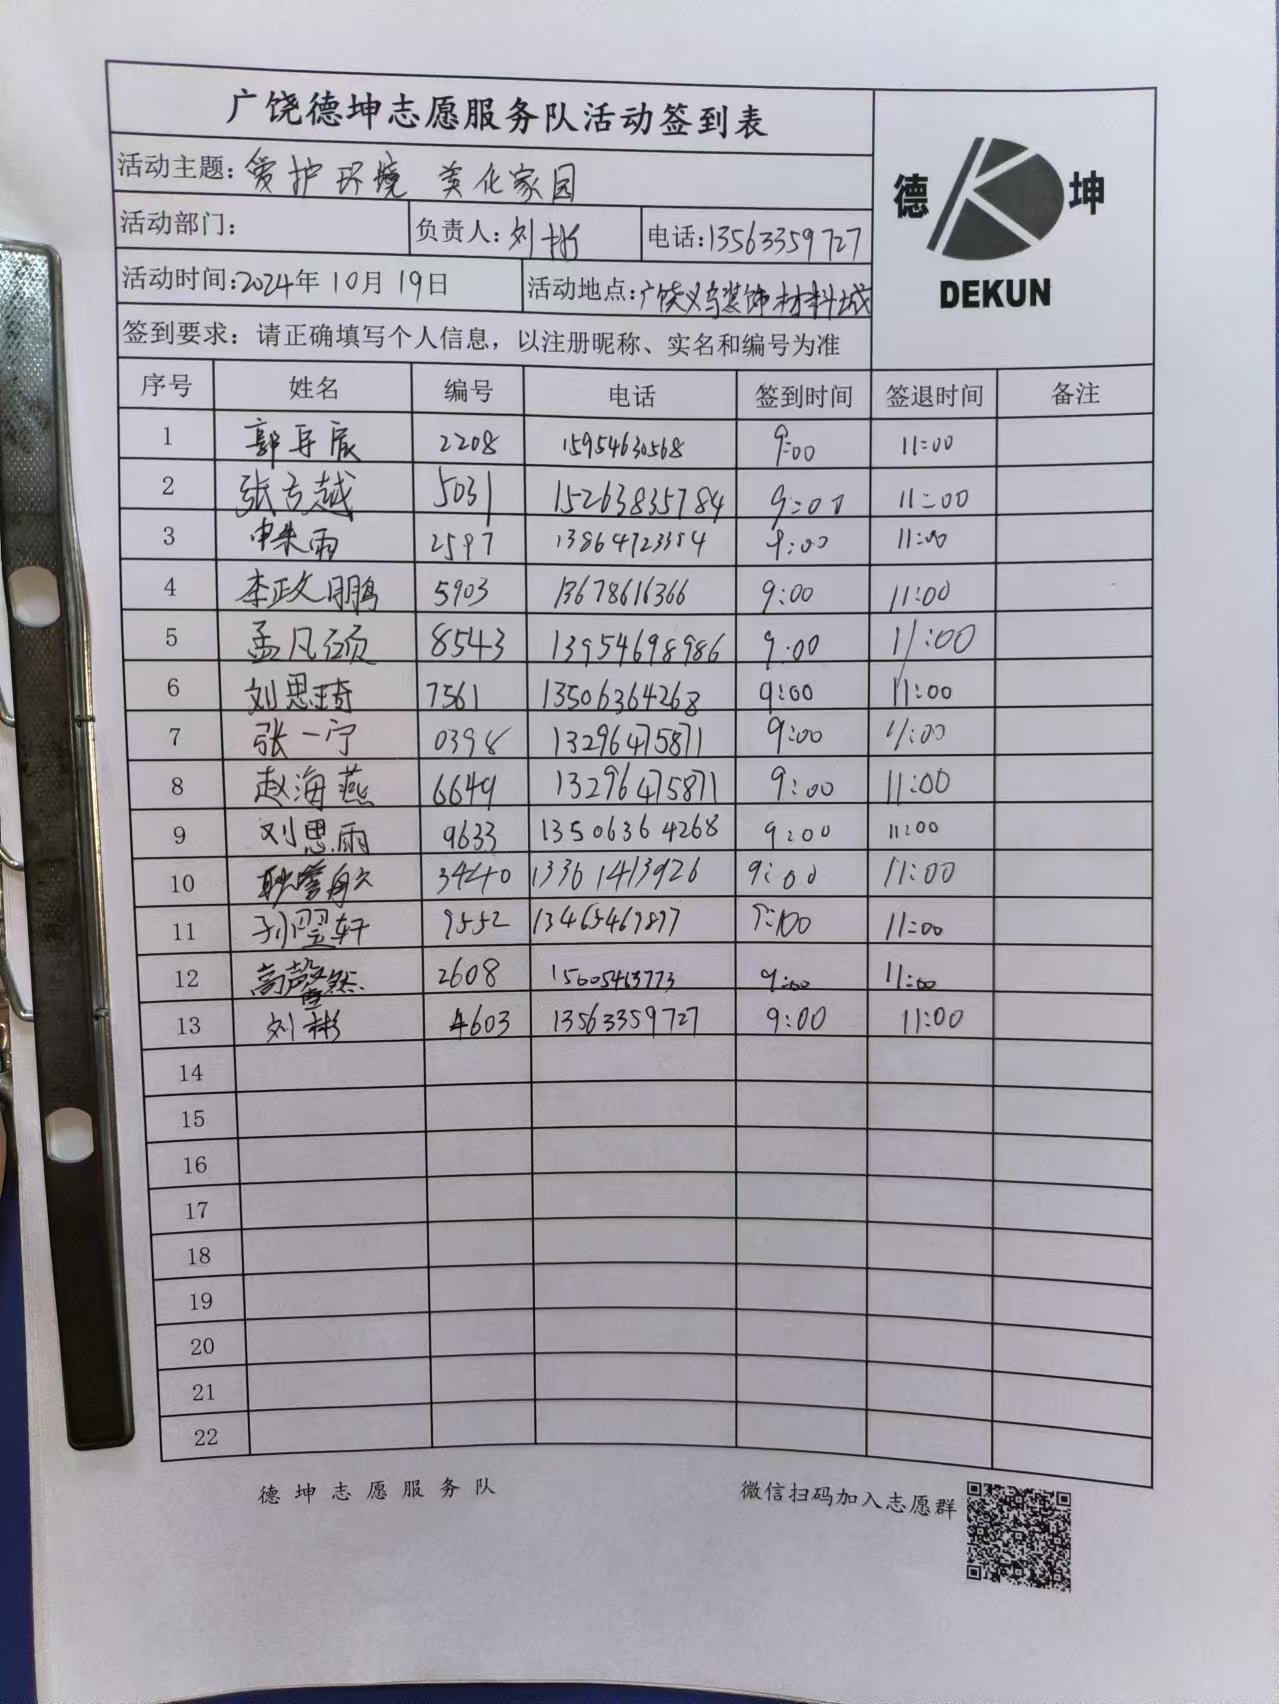 广饶德坤志愿服务队活动签到表
活动主题：爱护环境 美化家园
德 坤
DEKUN
活动部门： 负责人：刘彬 电话：13563359727
活动时间：2024年10月19日 活动地点：广饶义乌装饰材料城
签到要求：请正确填写个人信息，以注册昵称、实名和编号为准
序号 姓名 编号 电话 签到时间 签退时间 备注
1 郭 2208 15954630568 9:00 11:00
2 张方越 5031 15263835784 9:00 11:00
3 申朱雨 2597 13864723354 9:00 11:00
4 李政鹏 5903 13678616366 9:00 11:00
5 孟凡硕 8543 13954698986 9:00 11:00
6 刘思琦 7561 13506364268 9:00 11:00
7 张一宁 0398 13296475871 9:00 11:00
8 赵海燕 6649 13296475871 9:00 11:00
9 刘思雨 9633 13506364268 9:00 11:00
10 耿 3440 13361413926 9:00 11:00
11 孙翌轩 9552 13465469897 9:00 11:00
12 高馨然 2608 15605463773 9:00 11:00
13 刘彬 4603 13563359727 9:00 11:00
14
15
16
17
18
19
20
21
22
德坤志愿服务队 微信扫码加入志愿群